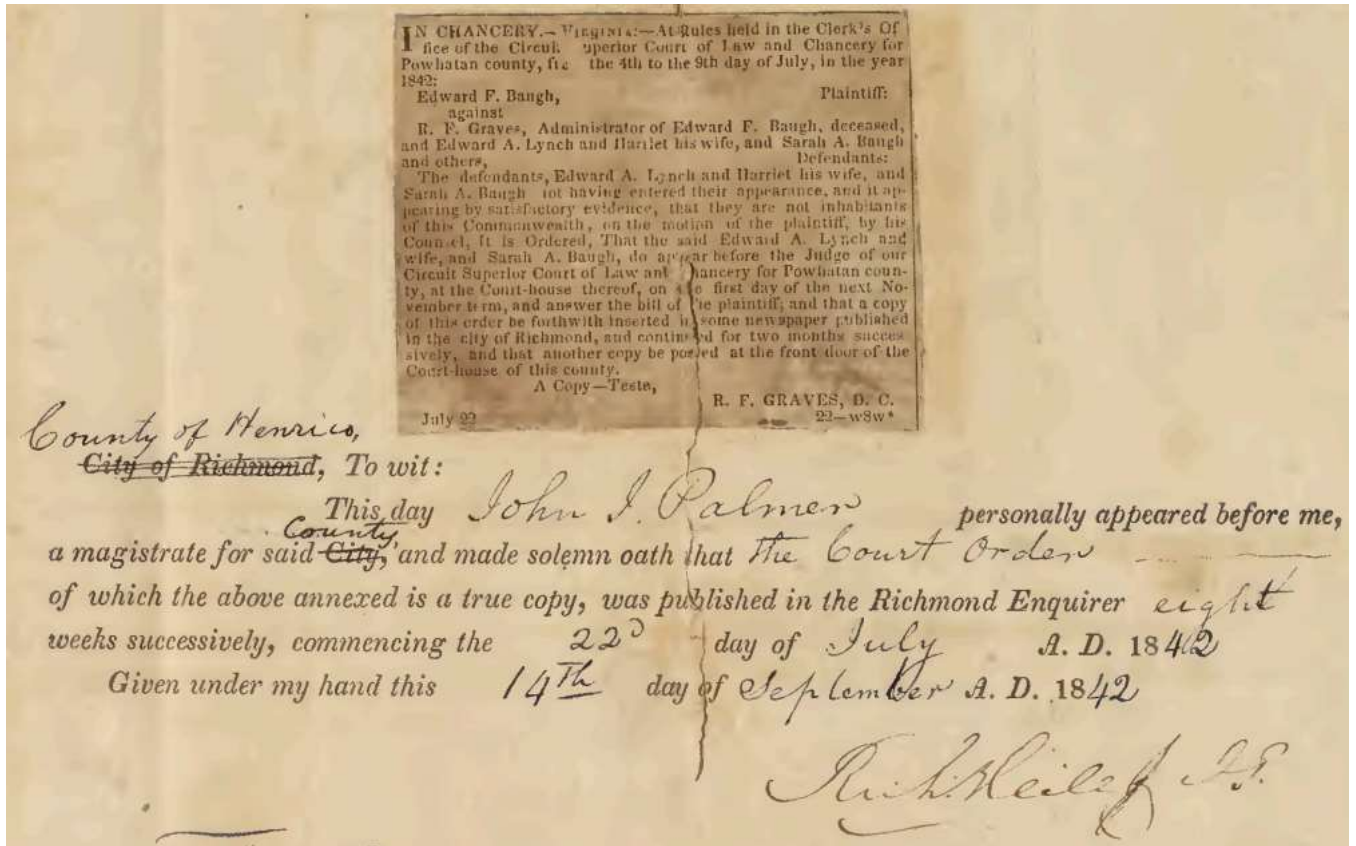 IN CHANCERY.—VIRGINIA:—At Rules held in the Clerk's Of
fice of the Circuit uperior Court of Law and Chancery for
Powhatan county, the 4th to the 9th day of July, in the year
1842:
Edward F. Baugh, Plaintiff:
against
R. F. Graves, Administrator of Edward F. Baugh, deceased,
and Edward A. Lynch and Harriet his wife, and Sarah A. Baugh
and others, Defendants:
The defendants, Edward A. Lynch and Harriet his wife, and
Sarah A. Baugh not having entered their appearance, and it ap-
pearing by satisfactory evidence, that they are not inhabitants
of this Commonwealth, on the motion of the plaintiff, by his
Counsel, It is Ordered, That the said Edward A. Lynch and
wife, and Sarah A. Baugh, do appear before the Judge of our
Circuit Superior Court of Law and hancery for Powhatan coun-
ty, at the Court-house thereof, on the first day of the next No-
vember term, and answer the bill of the plaintiff; and that a copy
of this order be forthwith inserted in some newspaper published
in the city of Richmond, and continued for two months succes
sively, and that another copy be posted at the front door of the
Court-house of this county.
A Copy—Teste,
R. F. GRAVES, D. C.
July 22 22—w8w*
County of Henrico,
City of Richmond, To wit:
This day John I. Palmer personally appeared before me,
County
a magistrate for said City, and made solemn oath that the Court Order
of which the above annexed is a true copy, was published in the Richmond Enquirer eight
weeks successively, commencing the 22d day of July A. D. 1842
Given under my hand this 14th day of September A. D. 1842